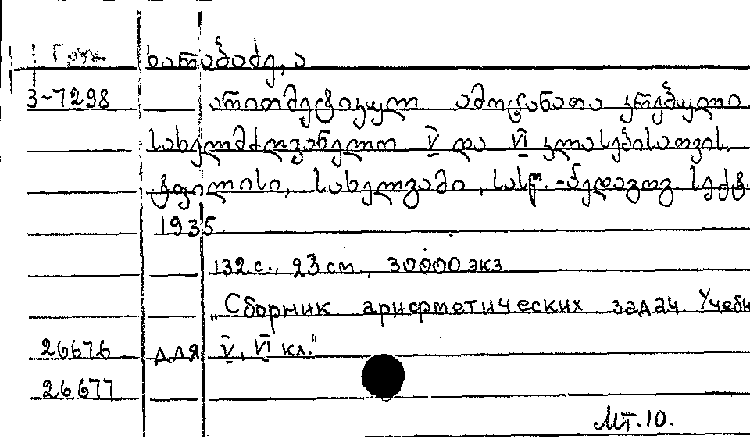 Груз ხარაბაძე, ა
3-7298 არითმეტიკული ამოცანათა კრებული
სახელმძღვანელო V და VI კლასებისათვის,
ტფილისი, სახელგამი, სას.-პედაგოგ სექტ
1935.
132 с., 23 см., 30000 экз
„Сборник арифметических задач. Учебн
26676 для V, VI кл."
26677
Мт.10.